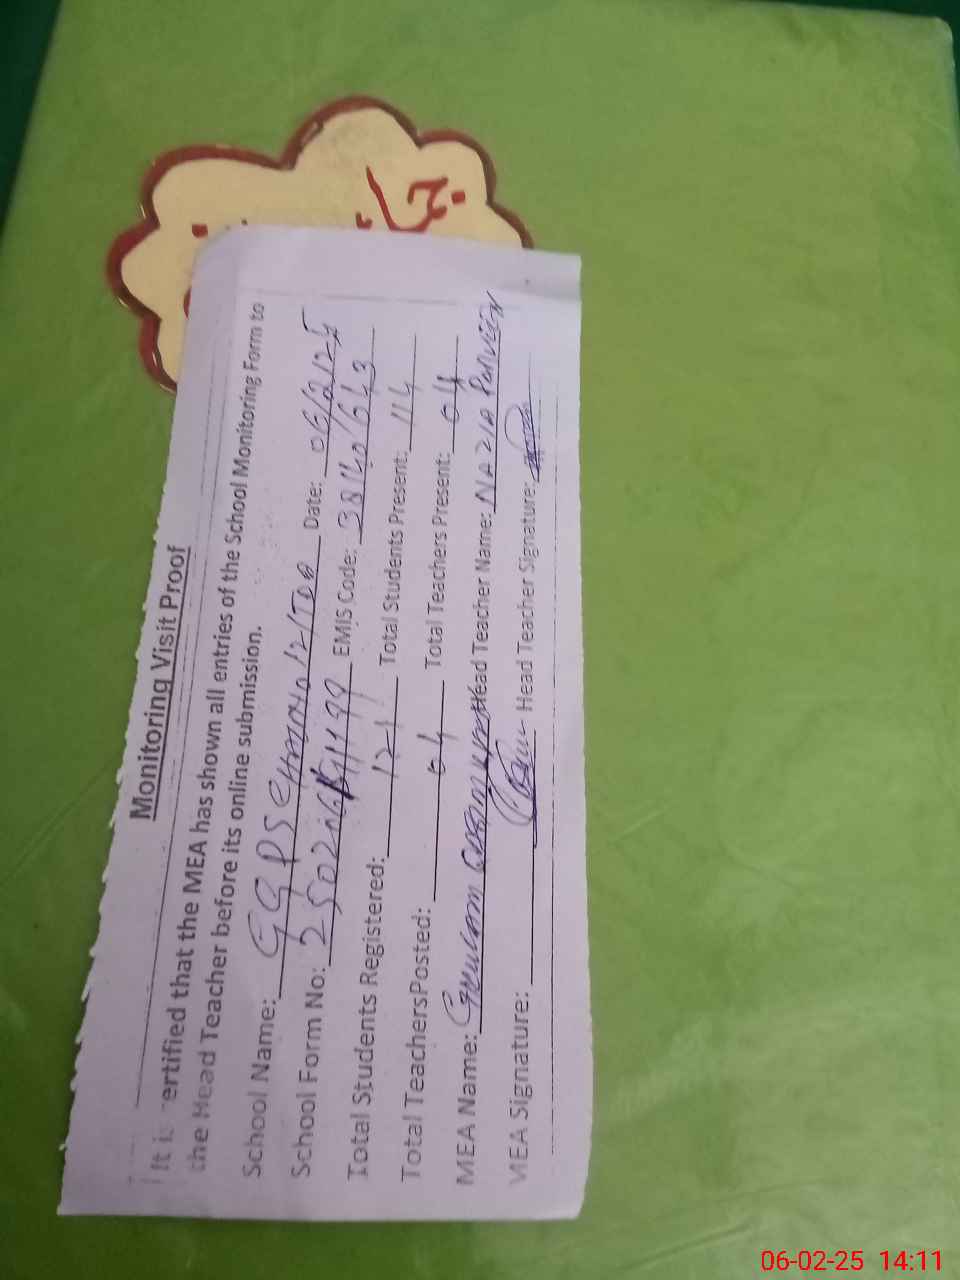 Monitoring Visit Proof
It is certified that the MEA has shown all entries of the School Monitoring Form to
the Head Teacher before its online submission.
School Name: GGPS Date: 06/2/25
School Form No: EMIS Code: 38140643
Total Students Registered: 121 Total Students Present: 114
Total TeachersPosted: 04 Total Teachers Present: 04
MEA Name: Ghulam Head Teacher Name: NAZIA PARVEEN
MEA Signature: Head Teacher Signature:
06-02-25 14:11